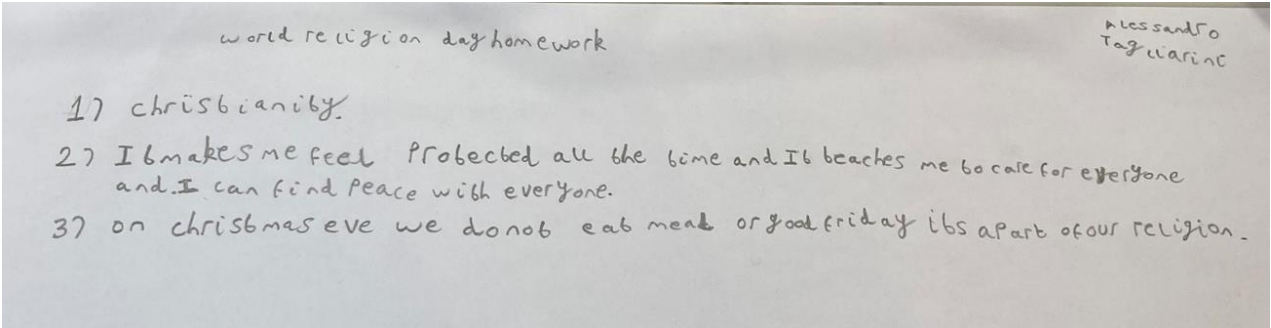 world religion day homework
Alessandro
Tagliarini
1) christianity.
2) It makes me feel Protected all the time and It teaches me to care for everyone
and. I can find Peace with everyone.
3) on christmas eve we do not eat meat or good friday its apart of our religion.